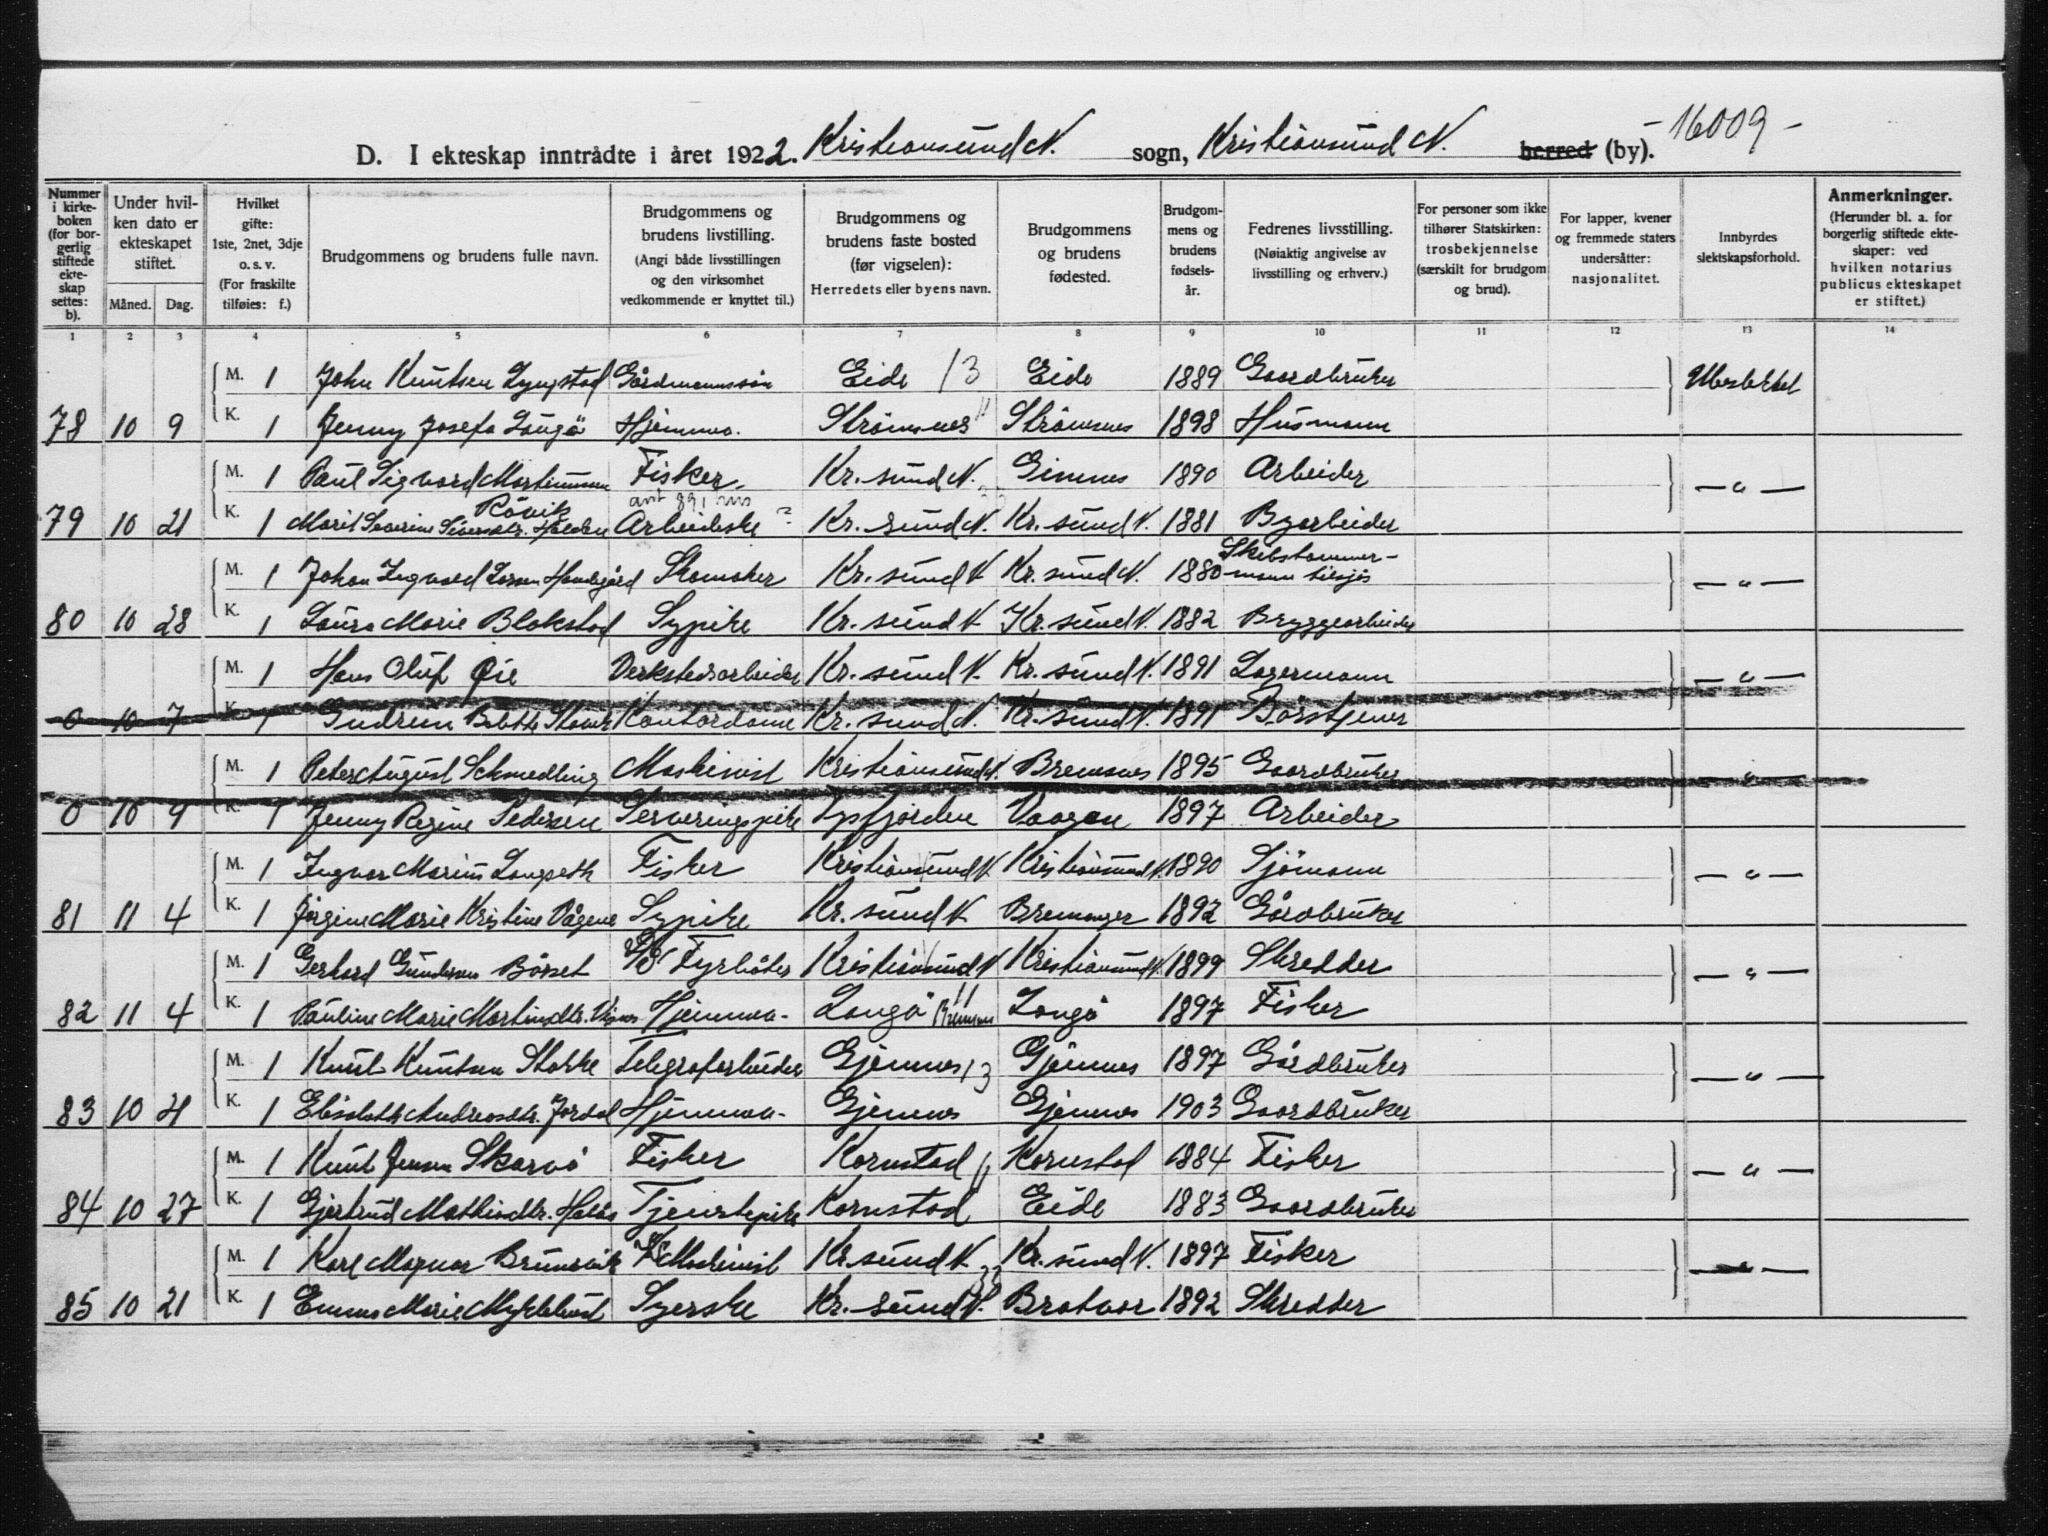 D. I ekteskap inntrådte i året 1922. Kristiansund N. sogn, Kristiansund N. herred (by). -16009-
Nummer i kirke-boken (for bor-gerlig stiftede ekte-skap settes: b).
Under hvil-ken dato er ekteskapet stiftet. Måned. Dag.
Hvilket gifte: 1ste, 2net, 3dje o. s. v. (For fraskilte tilføies: f.)
Brudgommens og brudens fulle navn.
Brudgommens og brudens livstilling. (Angi både livsstillingen og den virksomhet vedkommende er knyttet til.)
Brudgommens og brudens faste bosted (før vigselen): Herredets eller byens navn.
Brudgommens og brudens fødested.
Brudgom-mens og brudens fødsels-år.
Fedrenes livsstilling. (Nøiaktig angivelse av livsstilling og erhverv.)
For personer som ikke tilhører Statskirken: trosbekjennelse (særskilt for brudgom og brud).
For lapper, kvener og fremmede staters undersåtter: nasjonalitet.
Innbyrdes slektskapsforhold.
Anmerkninger. (Herunder bl. a. for borgerlig stiftede ekte-skaper: ved hvilken notarius publicus ekteskapet er stiftet.)
1 2 3 4 5 6 7 8 9 10 11 12 13 14
M. 1 John Knutsen Lyngstad Gårdmannssøn Eide 13 Eide 1889 Gaardbruker Ubeslektet
78 10 9 K. 1 Jenny Josefa Langø Hjemme. Strømsnes 11 Strømsnes 1898 Husmann
M. 1 Paul Sigvard Martinusen Fisker. Kr.sund N. Gimnes 1890 Arbeider — " —
Røvik
79 10 21 K. 1 Marit Severine Siversdtr. Halden Arbeiderske ? Kr.sund N. Kr.sund N. 1881 Byarbeider
Skibstømmer-
M. 1 Johan Ingvald Larsen Skomaker Kr.sund N Kr.sund N. 1880 mann tilsjøs — " —
80 10 28 K. 1 Laura Marie Blakstad Sypike Kr.sund N Kr.sund N. 1882 Bryggearbeider
M. 1 Hans Oluf Øie Verkstedsarbeider Kr.sund N. Kr.sund N. 1891 Lagermann — " —
0 10 7 K. 1 Gudrun Kontordame Kr.sund N. Kr.sund N. 1891
M. 1 Peter August Schmedling Maskinist Kristiansund N. Bremsnes 1895 Gaardbruker — " —
0 10 9 K. 1 Jenny Regine Pedersen Serveringspike Vaagan 1897 Arbeider
M. 1 Ingvar Marius Langseth Fisker Kristiansund N. Kristiansund N. 1890 Sjømann — " —
81 11 4 K. 1 Jørgine Marie Kristine Vågene Sypike Kr.sund N Bremanger 1892 Gårdbruker
M. 1 Gerhard Gundersen Børset Fyrbøter Kristiansund N Kristiansund N. 1899 Skredder — " —
82 11 4 K. 1 Pauline Marie Martinsdtr. Hjemme- Langø 11 Langø 1897 Fisker
M. 1 Knut Knutsen Stokke Telegrafarbeider Gjemnes 13 Gjemnes 1897 Gårdbruker — " —
83 10 K. 1 Elisabeth Andreasdtr. Jordal Hjemme- Gjemnes Gjemnes 1903 Gaardbruker
M. 1 Knut Jensen Skarvø Fisker Kornstad Kornstad 1884 Fisker — " —
84 10 27 K. 1 Gjertrud Mathisdtr. Tjenstepike Kornstad Eide 1883 Gaardbruker
M. 1 Karl Magnar Brunsvik Maskinist Kr.sund N Kr.sund N. 1897 Fisker — " —
85 10 21 K. 1 Emma Marie Myklebust Syerske Kr.sund N. Bratvær 1892 Skredder